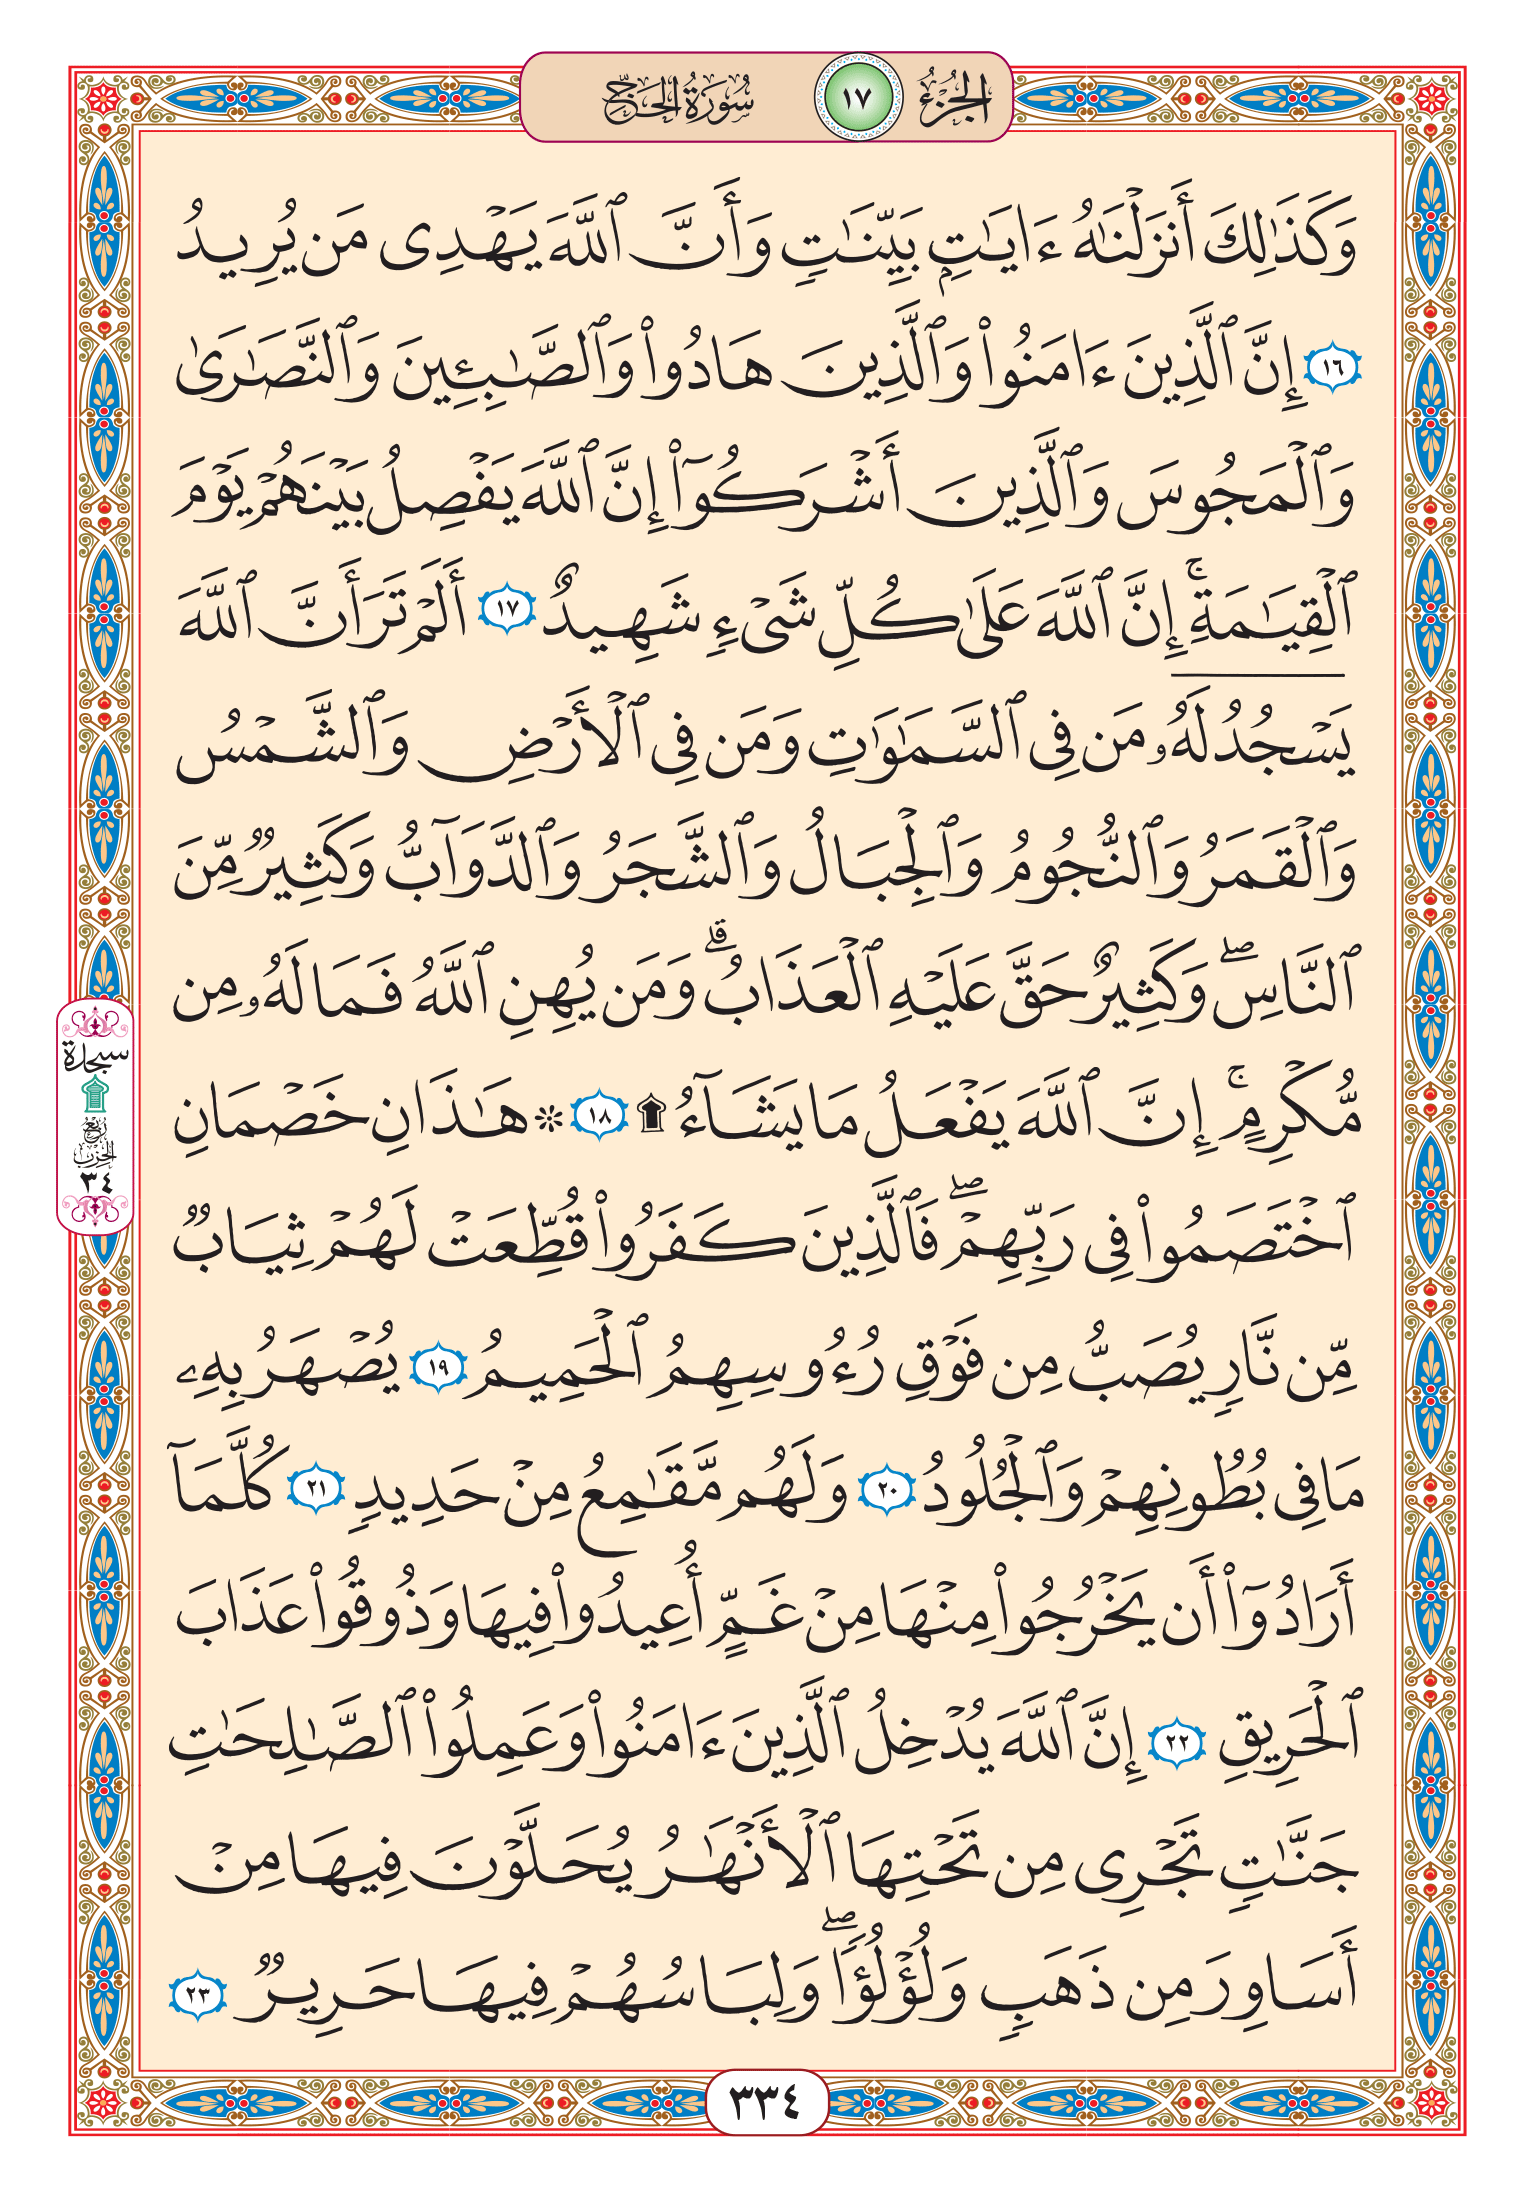 الجزء ١٧ سورة الحج
وَكَذَٰلِكَ أَنزَلۡنَٰهُ ءَايَٰتِۭ بَيِّنَٰتٖ وَأَنَّ ٱللَّهَ يَهۡدِي مَن يُرِيدُ
١٦ إِنَّ ٱلَّذِينَ ءَامَنُواْ وَٱلَّذِينَ هَادُواْ وَٱلصَّٰبِـِٔينَ وَٱلنَّصَٰرَىٰ
وَٱلۡمَجُوسَ وَٱلَّذِينَ أَشۡرَكُوٓاْ إِنَّ ٱللَّهَ يَفۡصِلُ بَيۡنَهُمۡ يَوۡمَ
ٱلۡقِيَٰمَةِۚ إِنَّ ٱللَّهَ عَلَىٰ كُلِّ شَيۡءٖ شَهِيدٌ ١٧ أَلَمۡ تَرَ أَنَّ ٱللَّهَ
يَسۡجُدُۤ لَهُۥ مَن فِي ٱلسَّمَٰوَٰتِ وَمَن فِي ٱلۡأَرۡضِ وَٱلشَّمۡسُ
وَٱلۡقَمَرُ وَٱلنُّجُومُ وَٱلۡجِبَالُ وَٱلشَّجَرُ وَٱلدَّوَآبُّ وَكَثِيرٞ مِّنَ
ٱلنَّاسِۖ وَكَثِيرٌ حَقَّ عَلَيۡهِ ٱلۡعَذَابُۗ وَمَن يُهِنِ ٱللَّهُ فَمَا لَهُۥ مِن
مُّكۡرِمٍۚ إِنَّ ٱللَّهَ يَفۡعَلُ مَا يَشَآءُ ۩ ١٨ ۞ هَٰذَانِ خَصۡمَانِ
ٱخۡتَصَمُواْ فِي رَبِّهِمۡۖ فَٱلَّذِينَ كَفَرُواْ قُطِّعَتۡ لَهُمۡ ثِيَابٞ
مِّن نَّارٖ يُصَبُّ مِن فَوۡقِ رُءُوسِهِمُ ٱلۡحَمِيمُ ١٩ يُصۡهَرُ بِهِۦ
مَا فِي بُطُونِهِمۡ وَٱلۡجُلُودُ ٢٠ وَلَهُم مَّقَٰمِعُ مِنۡ حَدِيدٖ ٢١ كُلَّمَآ
أَرَادُوٓاْ أَن يَخۡرُجُواْ مِنۡهَا مِنۡ غَمٍّ أُعِيدُواْ فِيهَا وَذُوقُواْ عَذَابَ
ٱلۡحَرِيقِ ٢٢ إِنَّ ٱللَّهَ يُدۡخِلُ ٱلَّذِينَ ءَامَنُواْ وَعَمِلُواْ ٱلصَّٰلِحَٰتِ
جَنَّٰتٖ تَجۡرِي مِن تَحۡتِهَا ٱلۡأَنۡهَٰرُ يُحَلَّوۡنَ فِيهَا مِنۡ
أَسَاوِرَ مِن ذَهَبٖ وَلُؤۡلُؤٗاۖ وَلِبَاسُهُمۡ فِيهَا حَرِيرٞ ٢٣
سجدة
ربع
الحزب
٣٤
٣٣٤